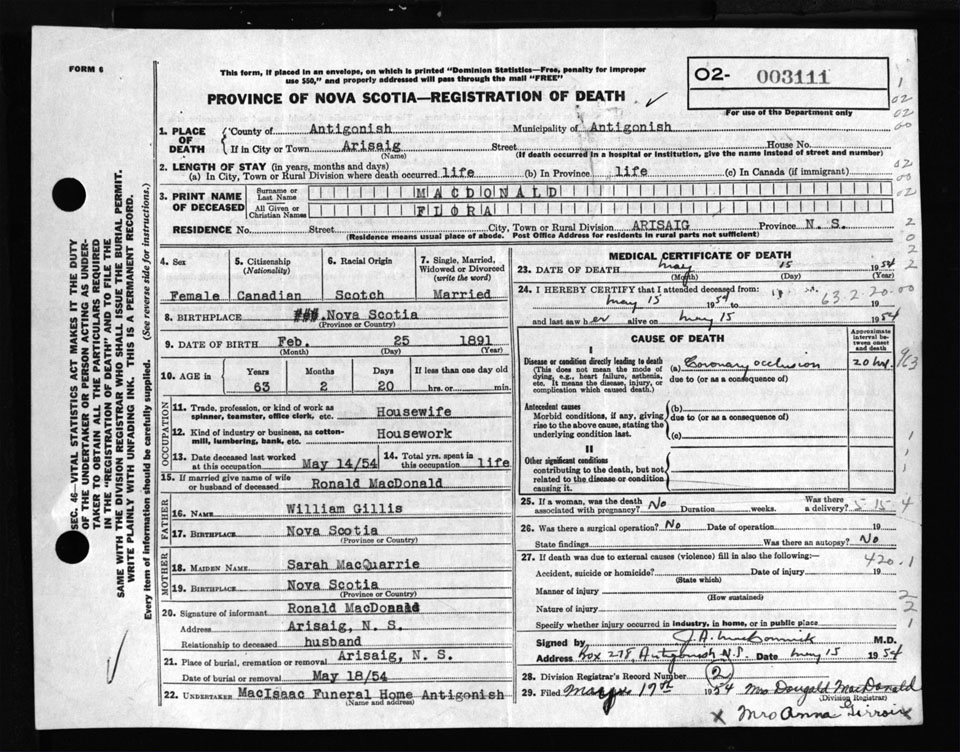 FORM 6
This form, if placed in an envelope, on which is printed "Dominion Statistics—Free, penalty for improper
use $50," and properly addressed will pass through the mail "FREE"
PROVINCE OF NOVA SCOTIA—REGISTRATION OF DEATH
O2- 003111
For use of the Department only
1. PLACE OF DEATH
County of Antigonish Municipality of Antigonish
If in City or Town Arisaig Street House No.
(Name) (If death occurred in a hospital or institution, give the name instead of street and number)
2. LENGTH OF STAY (in years, months and days)
(a) In City, Town or Rural Division where death occurred life (b) In Province life (c) In Canada (if immigrant)
3. PRINT NAME OF DECEASED
Surname or Last Name MACDONALD
All Given or Christian Names FLORA
RESIDENCE No. Street City, Town or Rural Division ARISAIG Province N. S.
(Residence means usual place of abode. Post Office Address for residents in rural parts not sufficient)
4. Sex
Female
5. Citizenship
(Nationality)
Canadian
6. Racial Origin
Scotch
7. Single, Married,
Widowed or Divorced
(write the word)
Married
8. BIRTHPLACE Nova Scotia
(Province or Country)
9. DATE OF BIRTH Feb. 25 1891
(Month) (Day) (Year)
10. AGE in
Years Months Days If less than one day old
63 2 20 hrs. or min.
OCCUPATION
11. Trade, profession, or kind of work as
spinner, teamster, office clerk, etc. Housewife
12. Kind of industry or business, as cotton-
mill, lumbering, bank, etc. Housework
13. Date deceased last worked
at this occupation May 14/54
14. Total yrs. spent in
this occupation life
15. If married give name of wife
or husband of deceased Ronald MacDonald
FATHER
16. NAME William Gillis
17. BIRTHPLACE Nova Scotia
(Province or Country)
MOTHER
18. MAIDEN NAME Sarah MacQuarrie
19. BIRTHPLACE Nova Scotia
(Province or Country)
20. Signature of informant Ronald MacDonald
Address Arisaig, N. S.
Relationship to deceased husband
21. Place of burial, cremation or removal Arisaig, N. S.
Date of burial or removal May 18/54
22. UNDERTAKER MacIsaac Funeral Home Antigonish
(Name and address)
MEDICAL CERTIFICATE OF DEATH
23. DATE OF DEATH May 15 1954
(Month) (Day) (Year)
24. I HEREBY CERTIFY that I attended deceased from:
May 15 1954 to 19
63.2.20.00
and last saw her alive on May 15 1954
CAUSE OF DEATH
Approximate
interval be-
tween onset
and death
I
Disease or condition directly leading to death
(This does not mean the mode of
dying, e.g., heart failure, asthenia,
etc. It means the disease, injury, or
complication which caused death.)
(a) Coronary occlusion 20 hrs.
due to (or as a consequence of)
Antecedent causes
Morbid conditions, if any, giving
rise to the above cause, stating the
underlying condition last.
(b)
due to (or as a consequence of)
(c)
II
Other significant conditions
contributing to the death, but not
related to the disease or condition
causing it.
25. If a woman, was the death
associated with pregnancy? No Duration weeks. Was there
a delivery?
5 15 4
26. Was there a surgical operation? No Date of operation 19
State findings Was there an autopsy? No
27. If death was due to external causes (violence) fill in also the following:—
420.1
Accident, suicide or homicide? Date of injury 19
(State which)
Manner of injury
(How sustained)
Nature of injury
Specify whether injury occurred in industry, in home, or in public place
Signed by J.A. MacCormick M.D.
Address Box 278, Antigonish N.S. Date May 15 1954
28. Division Registrar's Record Number 2
29. Filed May 17th 1954 Mrs Dougald MacDonald
(Division Registrar)
x Mrs Anna Girroir x
SEC. 46—VITAL STATISTICS ACT MAKES IT THE DUTY
OF THE UNDERTAKER OR PERSON ACTING AS UNDER-
TAKER TO OBTAIN ALL THE PARTICULARS REQUIRED
IN THE "REGISTRATION OF DEATH" AND TO FILE THE
SAME WITH THE DIVISION REGISTRAR WHO SHALL ISSUE THE BURIAL PERMIT.
WRITE PLAINLY WITH UNFADING INK. THIS IS A PERMANENT RECORD.
Every item of information should be carefully supplied. (See reverse side for instructions.)